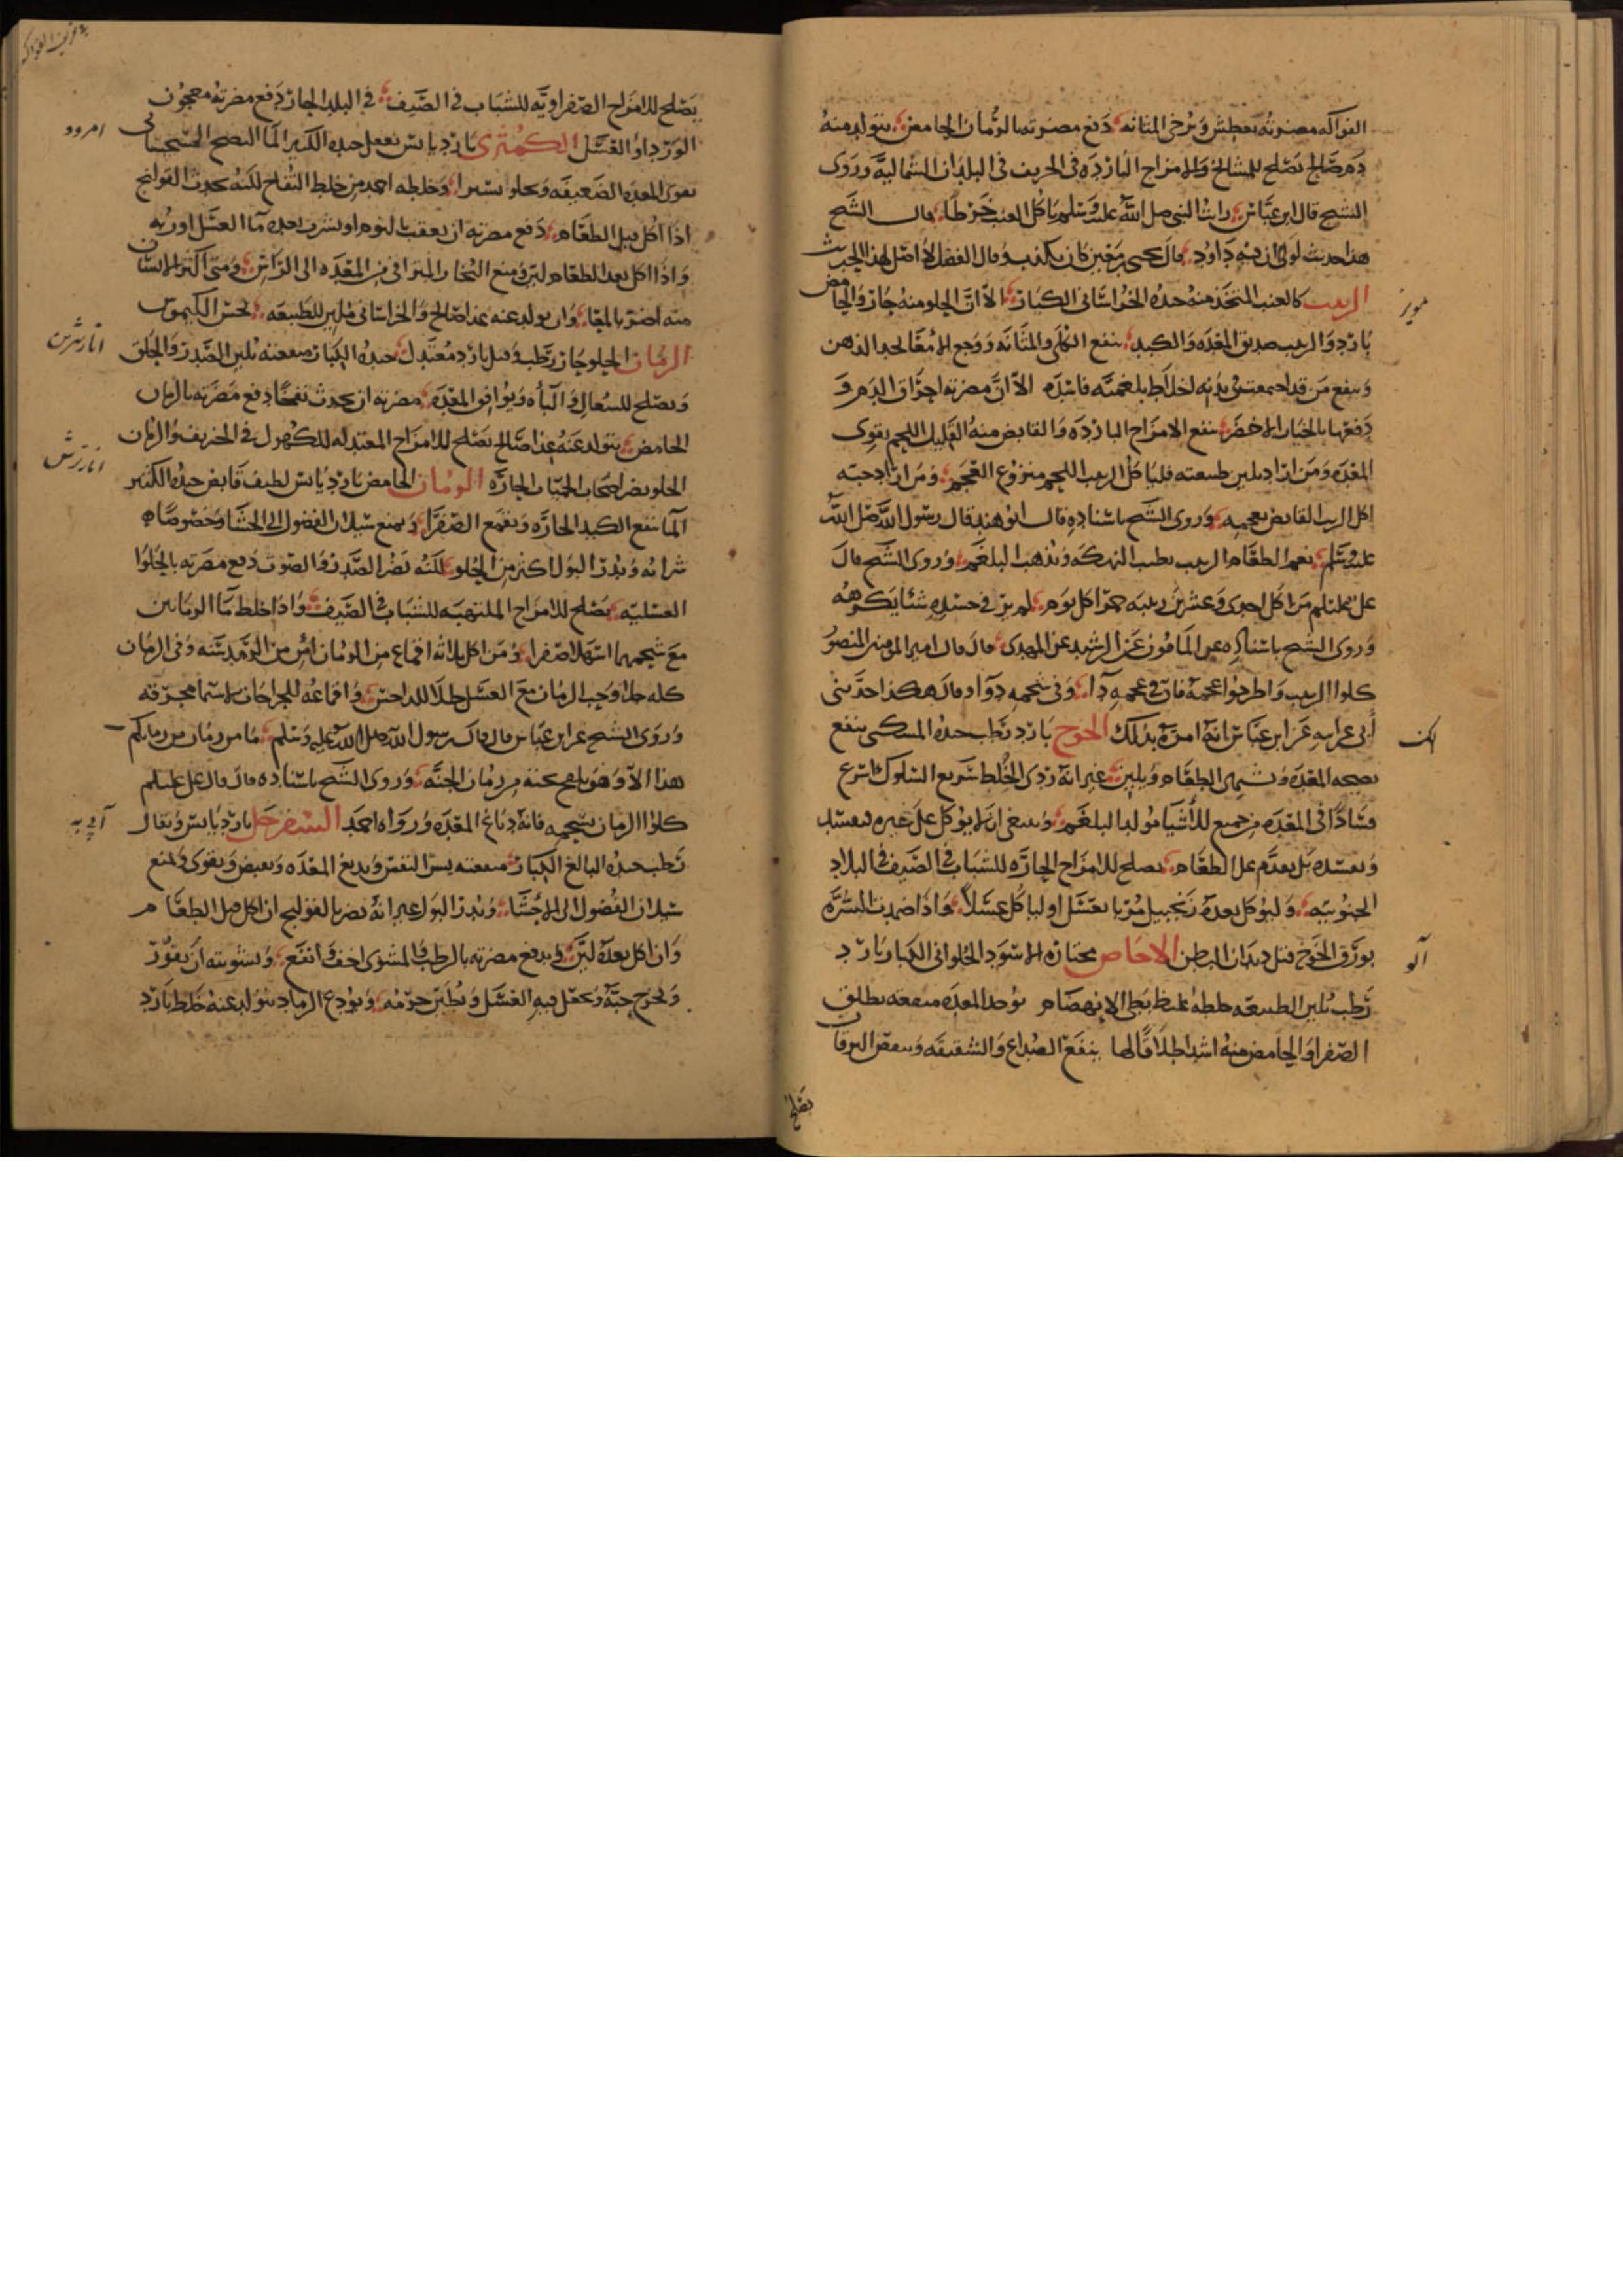 الفواكه مضرته يعطش ويرخي المثانه دفع مضرته بالرمان الحامض يتولد منه
دم صالح يصلح للمشايخ وللامزاج البارده في الخريف في البلدان الشماليه وروى
الشيخ قال ابن عباس رايت النبي صلى الله عليه وسلم ياكل العنب خرطا قال الشيخ
هذا حديث لولا ان فيه داود قال يحيى بن معين كان يكذب وقال الفضل لا اصل لهذا الحديث
الزبيب كالعنب المتخذ منه جيده الخراساني الكبار الا ان الحلو منه حار والحامض
بارد والزبيب صديق المعده والكبد ينفع الكلى والمثانه ووجع الامعا يحد الذهن
وينفع من قد اجتمعت في بدنه اخلاط بلغميه فاسده الا ان مضرته احراق الدم و
دفعها بالخيار الاخضر ينفع الامزاج البارده والقابض منه القليل اللحم يقوي
المعده ومن اراد تليين طبيعته فلياكل الزبيب اللحم منزوع العجم ومن اراد حبسه
اكل الزبيب القابض بعجمه وروى الشيخ باسناده قال ابو هند قال رسول الله صلى الله
عليه وسلم نعم الطعام الزبيب يطيب النهكه ويذهب البلغم وروى الشيخ قال
علي عليلم من اكل احدى وعشرين زبيبه حمرا كل يوم لم ير في جسده شيئا يكرهه
وروى الشيخ باسناده عن المامون عن الرشيد عن المهدي قال قال امير المومنين المنصور
كلوا الزبيب واطرحوا عجمه فان في عجمه دا وفي شحمه دوا وقال هكذا حدثني
ابي عن ابيه عن ابن عباس انه امره بذلك الخوخ بارد رطب جيده المسكي ينفع
نضيجه المعده ويشهي الطعام ويلين غير انه ردي الخلط سريع السلوك اسرع
فسادا في المعده من جميع الاشيا مولد البلغم وينبغي ان لا يوكل على غيره فيفسد
ويفسده بل يقدم على الطعام يصلح للامزاج الحاره للشباب في الصيف في البلاد
الجنوبيه وليوكل بعده زنجبيل مربا بعسل او لياكل عسلا واذا ضمدت السره
بورق الخوخ قتل ديدان البطن الاجاص يختار الاسود الحلواني الكبار بارد
رطب يلين الطبيعه خلطه غليظ بطي الانهضام يوجد المعده منفعته يطلق
الصفرا والحامض منه اشد اطلاقا لها ينفع الصداع والشقيقه وينفع اليرقان
يصلح
مويز
آلو
يصلح للامزاج الصفراويه للشباب في الصيف في البلد الحار دفع مضرته معجون
الورد او العسل الكمثرى بارد يابس جيده الكثير الما النضيج السجستاني
يقوي المعده الضعيفه ويجلو يسيرا وخلطه احمد من خلط التفاح لكنه يحدث القولنج
اذا اكل قبل الطعام دفع مضرته ان يعقب بالنوم او يشرب بعده ما العسل او ربه
واذا اكل بعد الطعام لين ومنع البخار المتراقي من المعده الى الراس ومتى اكثر الانسان
منه اضر بالمعا وان يولد عنه غذا صالح والخراساني ملين للطبيعه يحسن الكيموس
الرمان الحلو حار رطب وقيل بارد معتدل جيده الكبار منفعته يلين الصدر والحلق
ويصلح للسعال والباه ويوافق المعده مضرته ان يحدث نفخا دفع مضرته بالرمان
الحامض يتولد عنه غذا صالح يصلح للامزاج المعتدله للكهول في الخريف والرمان
الحلو يضر اصحاب الحميات الحاره الرمان الحامض بارد يابس لطيف قابض جيده الكثير
الما ينفع الكبد الحاره ويقمع الصفرا ويمنع سيلان الفضول الى الحشا وخصوصا
شرابه ويدر البول اكثر من الحلو لكنه يضر الصدر والصوت دفع مضرته بالحلوا
العسليه يصلح للامزاج الملتهبه للشباب في الصيف واذا خلط ما الرمانين
مع شحمهما اسهلا صفرا ومن اكل ثلاثه اقماع من الرمان امن من الرمد سنه وفي الرمان
كله جلا وحب الرمان مع العسل طلا للداحس واقماعه للجراحات لاسيما محرقه
وروى الشيخ عن ابن عباس قال قال رسول الله صلى الله عليه وسلم ما من رمان من رمانكم
هذا الا وهو يلقح بحبه من رمان الجنه وروى الشيخ باسناده قال قال علي عليلم
كلوا الرمان بشحمه فانه دباغ المعده ورواه احمد السفرجل بارد يابس ويقال
رطب جيده البالغ الكبار منفعته يسر النفس ويدبغ المعده ويقبض ويقوي ويمنع
سيلان الفضول الى الاحشا ويدر البول غير انه يضر بالقولنج ان اكل قبل الطعام
وان اكل بعده لين ويدفع مضرته بالرطب والمشوي اخف وانفع وتشويته ان يقور
ويخرج حبه ويجعل فيه العسل ويطين جرمه ويودع الرماد يتولد عنه خلط بارد
امرود
انار شيرين
انار ترش
آبي به